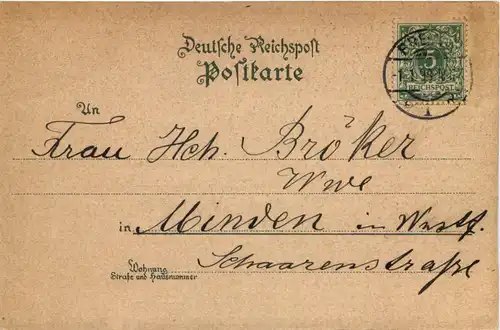 Deutsche Reichspost
Postkarte
5
REICHSPOST
An
Frau Hch. Bröker
Wwe
in Minden in Westf.
Wohnung
Straße und Hausnummer
Schaarenstraße